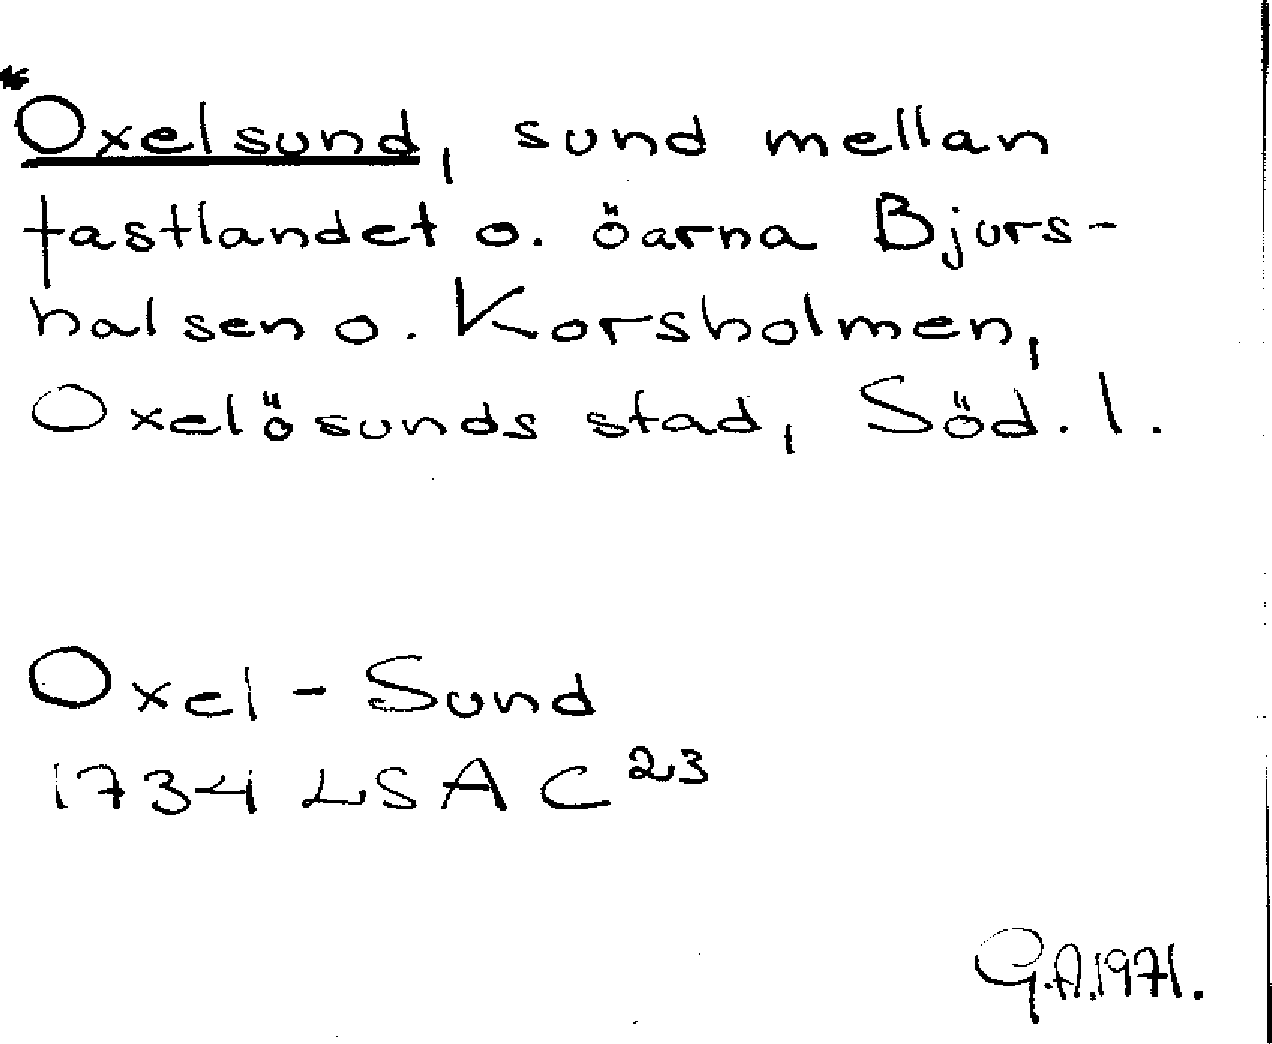 *Oxelsund, sund mellan
fastlandet o. öarna Bjurs-
halsen o. Korsholmen,
Oxelösunds stad, Söd. l.
Oxel-Sund
1734 LSA C 23
G.A. 1971.